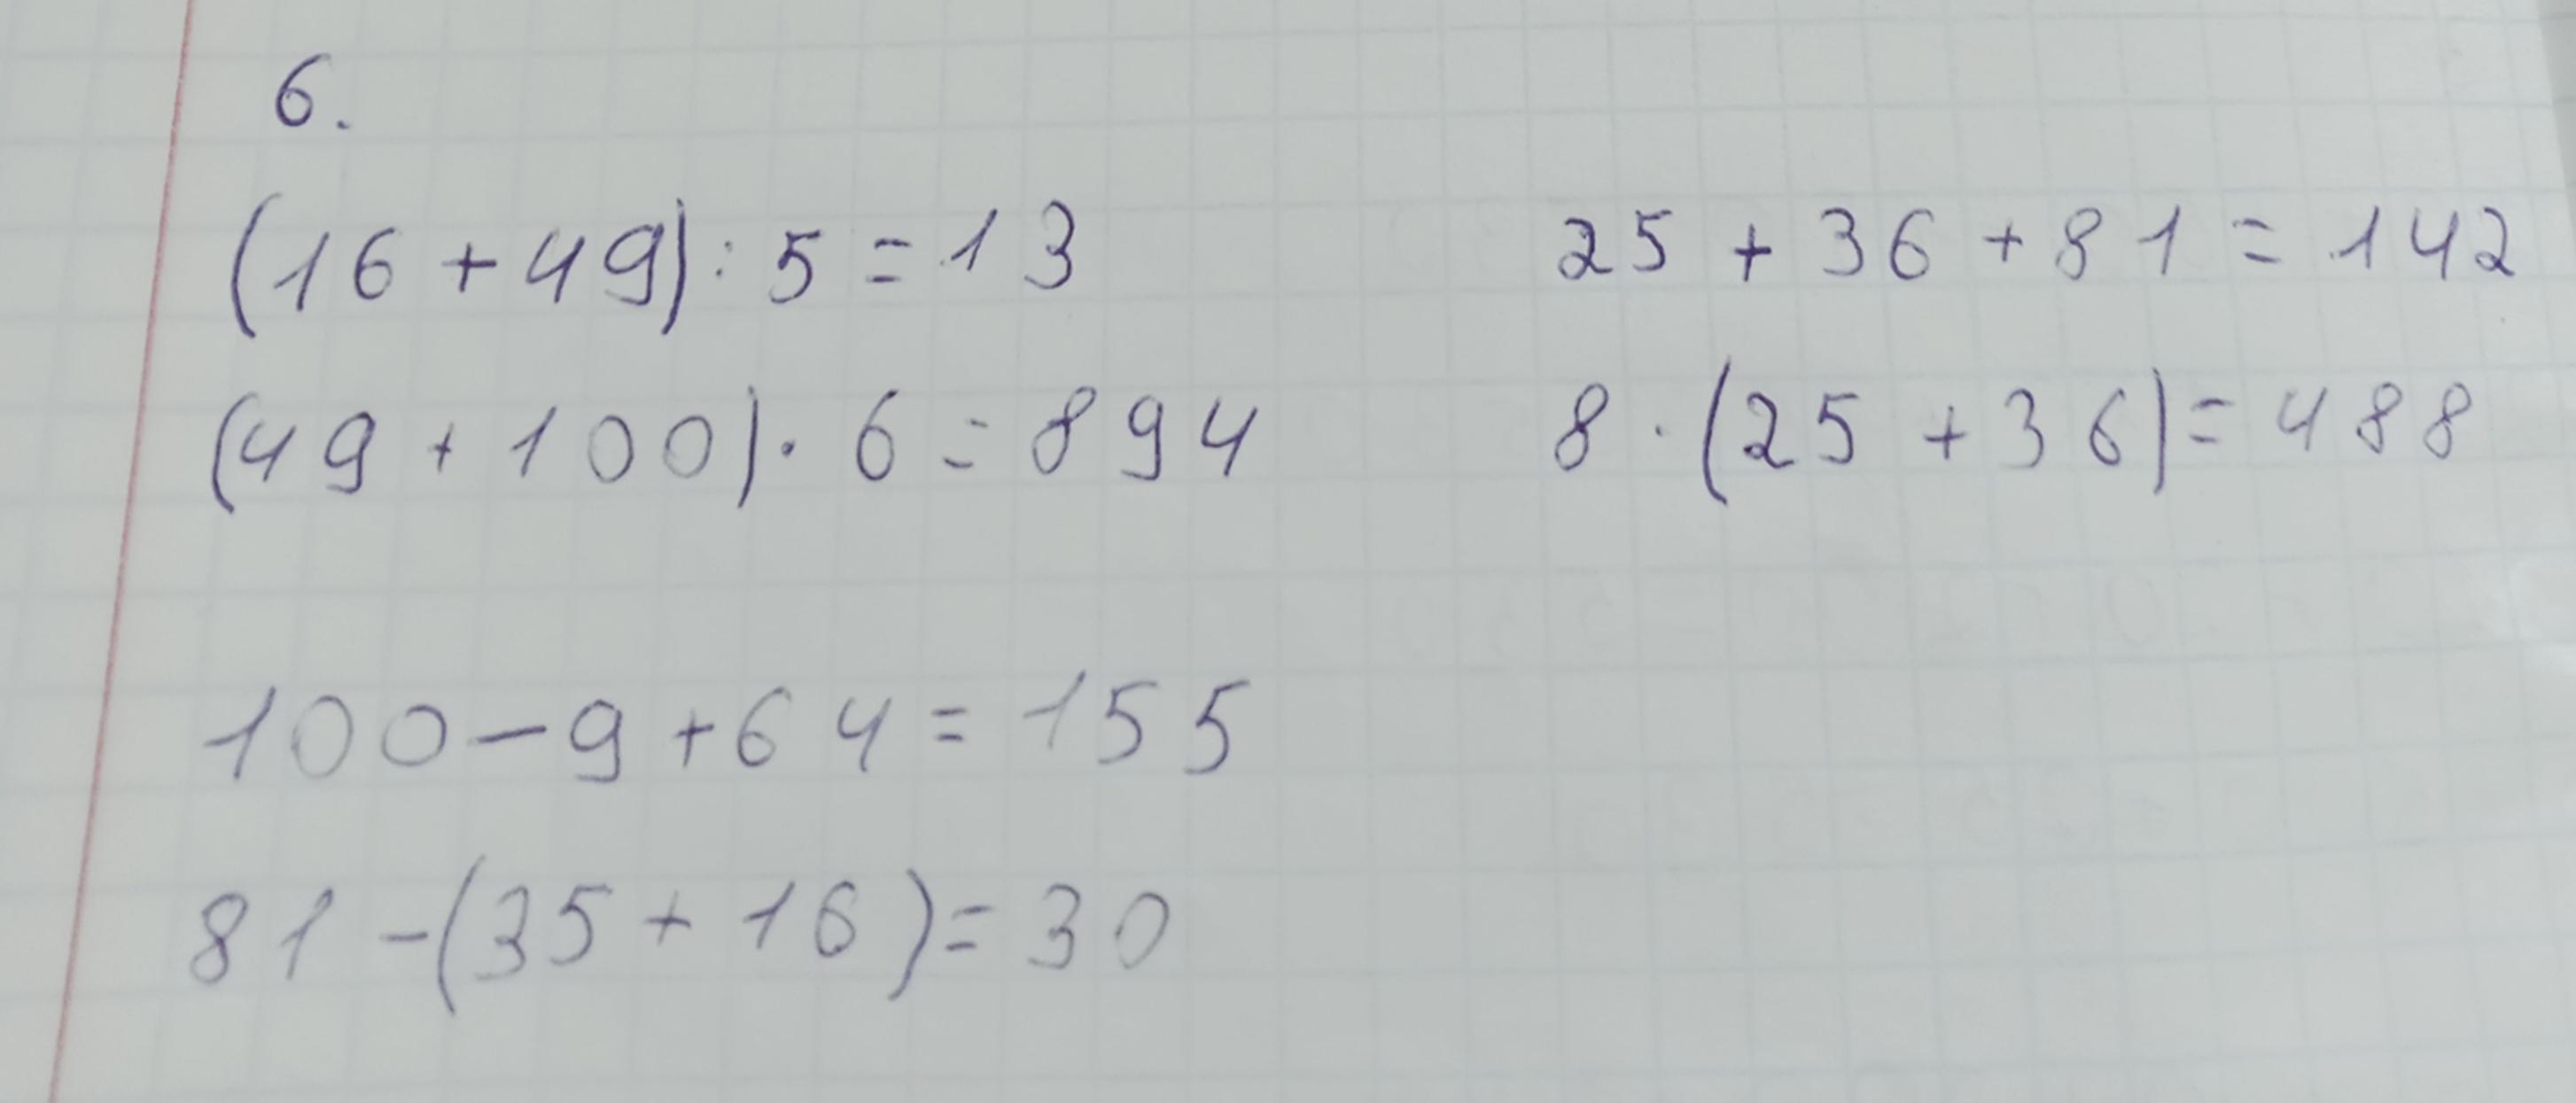 6.
(16+49):5=13
25+36+81=142
(49+100)·6=894
8·(25+36)=488
100-9+64=155
81-(35+16)=30